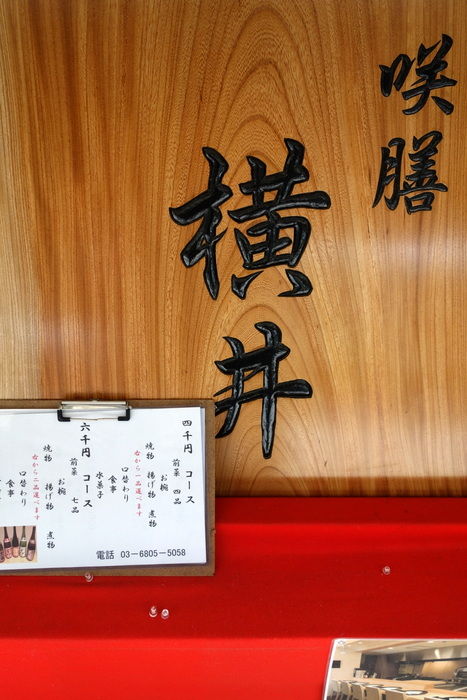 咲膳
横井
四千円 コース
前菜 四品
お椀
焼物 揚げ物 煮物
右から一品選べます
口替わり
食事
水菓子
六千円 コース
前菜 七品
お椀
焼物 揚げ物 煮物
右から二品選べます
口替わり
食事
電話 03-6805-5058